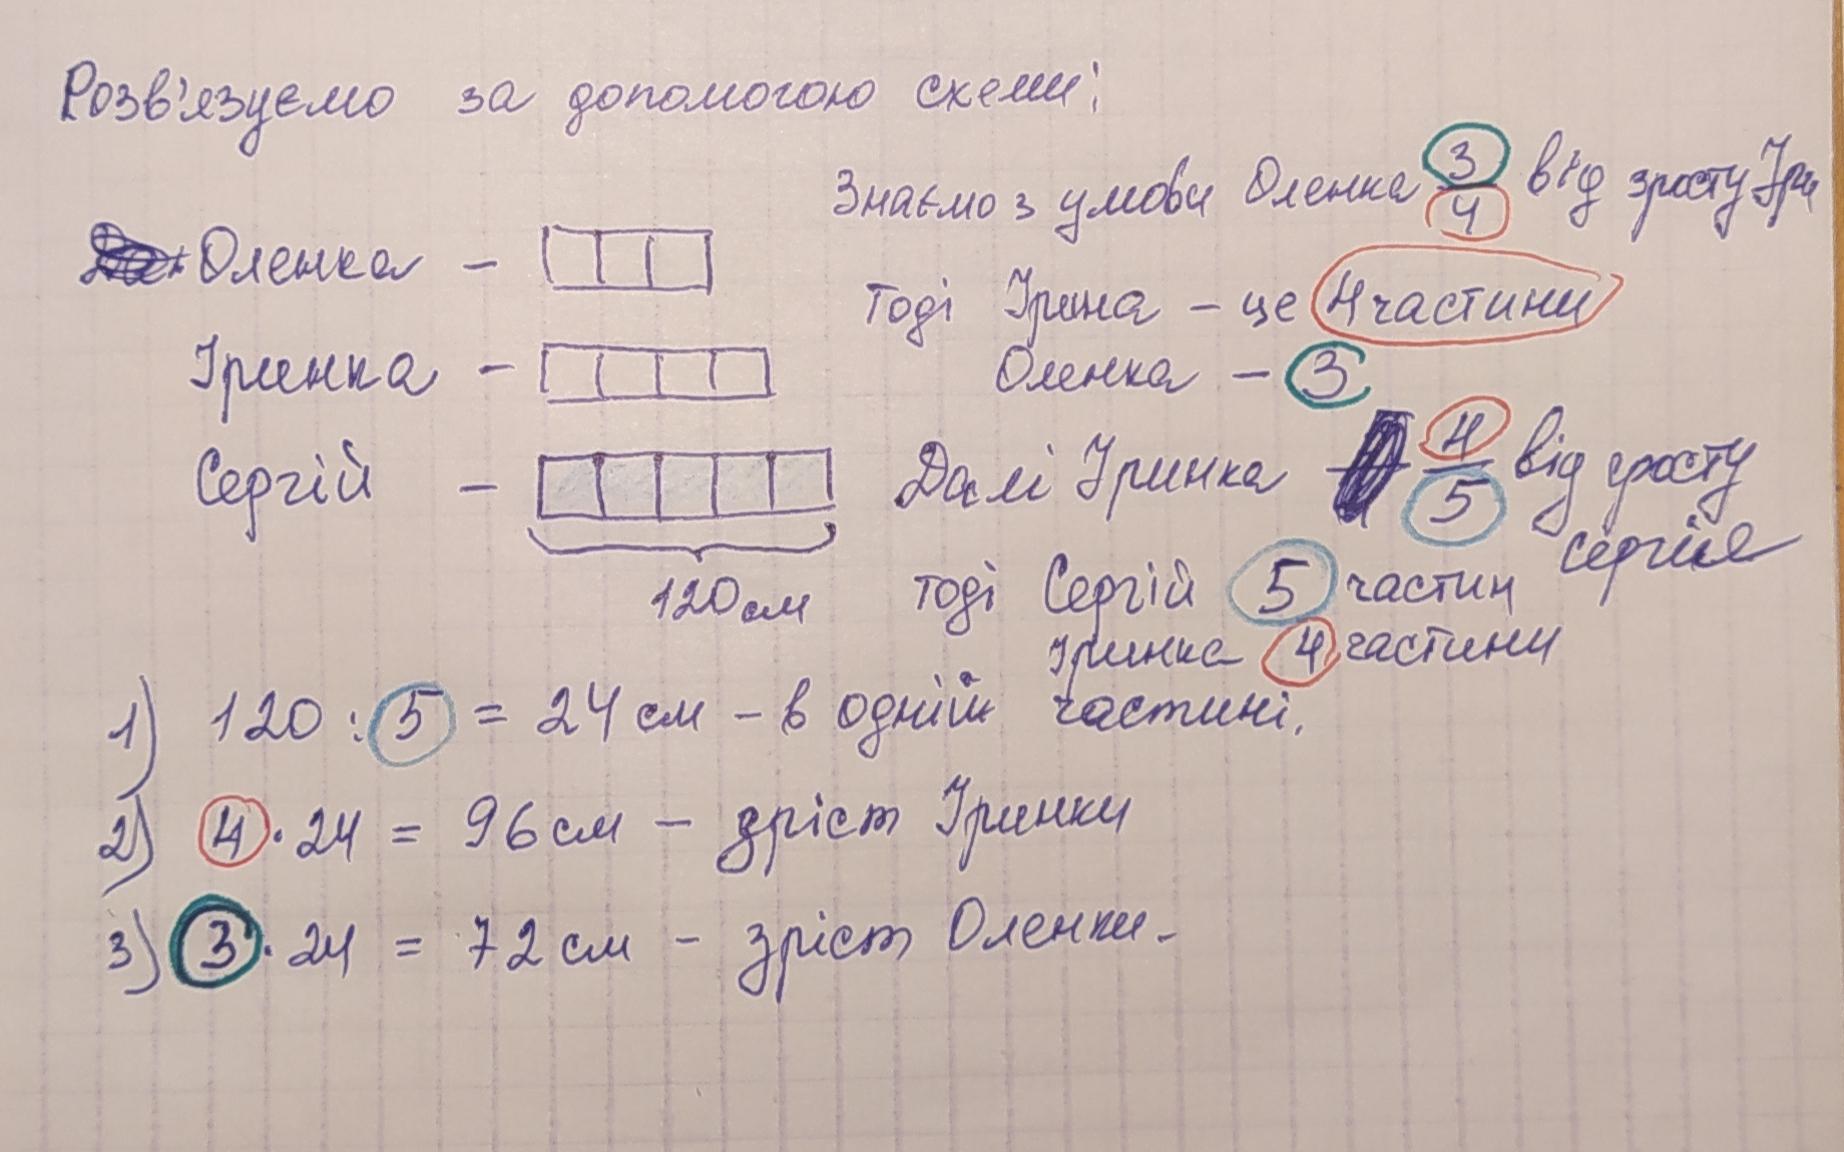 Розв'язуємо за допомогою схеми:
Знаємо з умови Оленка 3/4 від зросту Іри
Оленка –
Тоді Ірина – це 4 частини
Іринка –
Оленка – 3
Сергій –
Далі Іринка 4/5 від зросту
Сергія
120 см
тоді Сергій 5 частин
Іринка 4 частини
1) 120 : 5 = 24 см – в одній частині.
2) 4 · 24 = 96 см – зріст Іринки
3) 3 · 24 = 72 см – зріст Оленки.